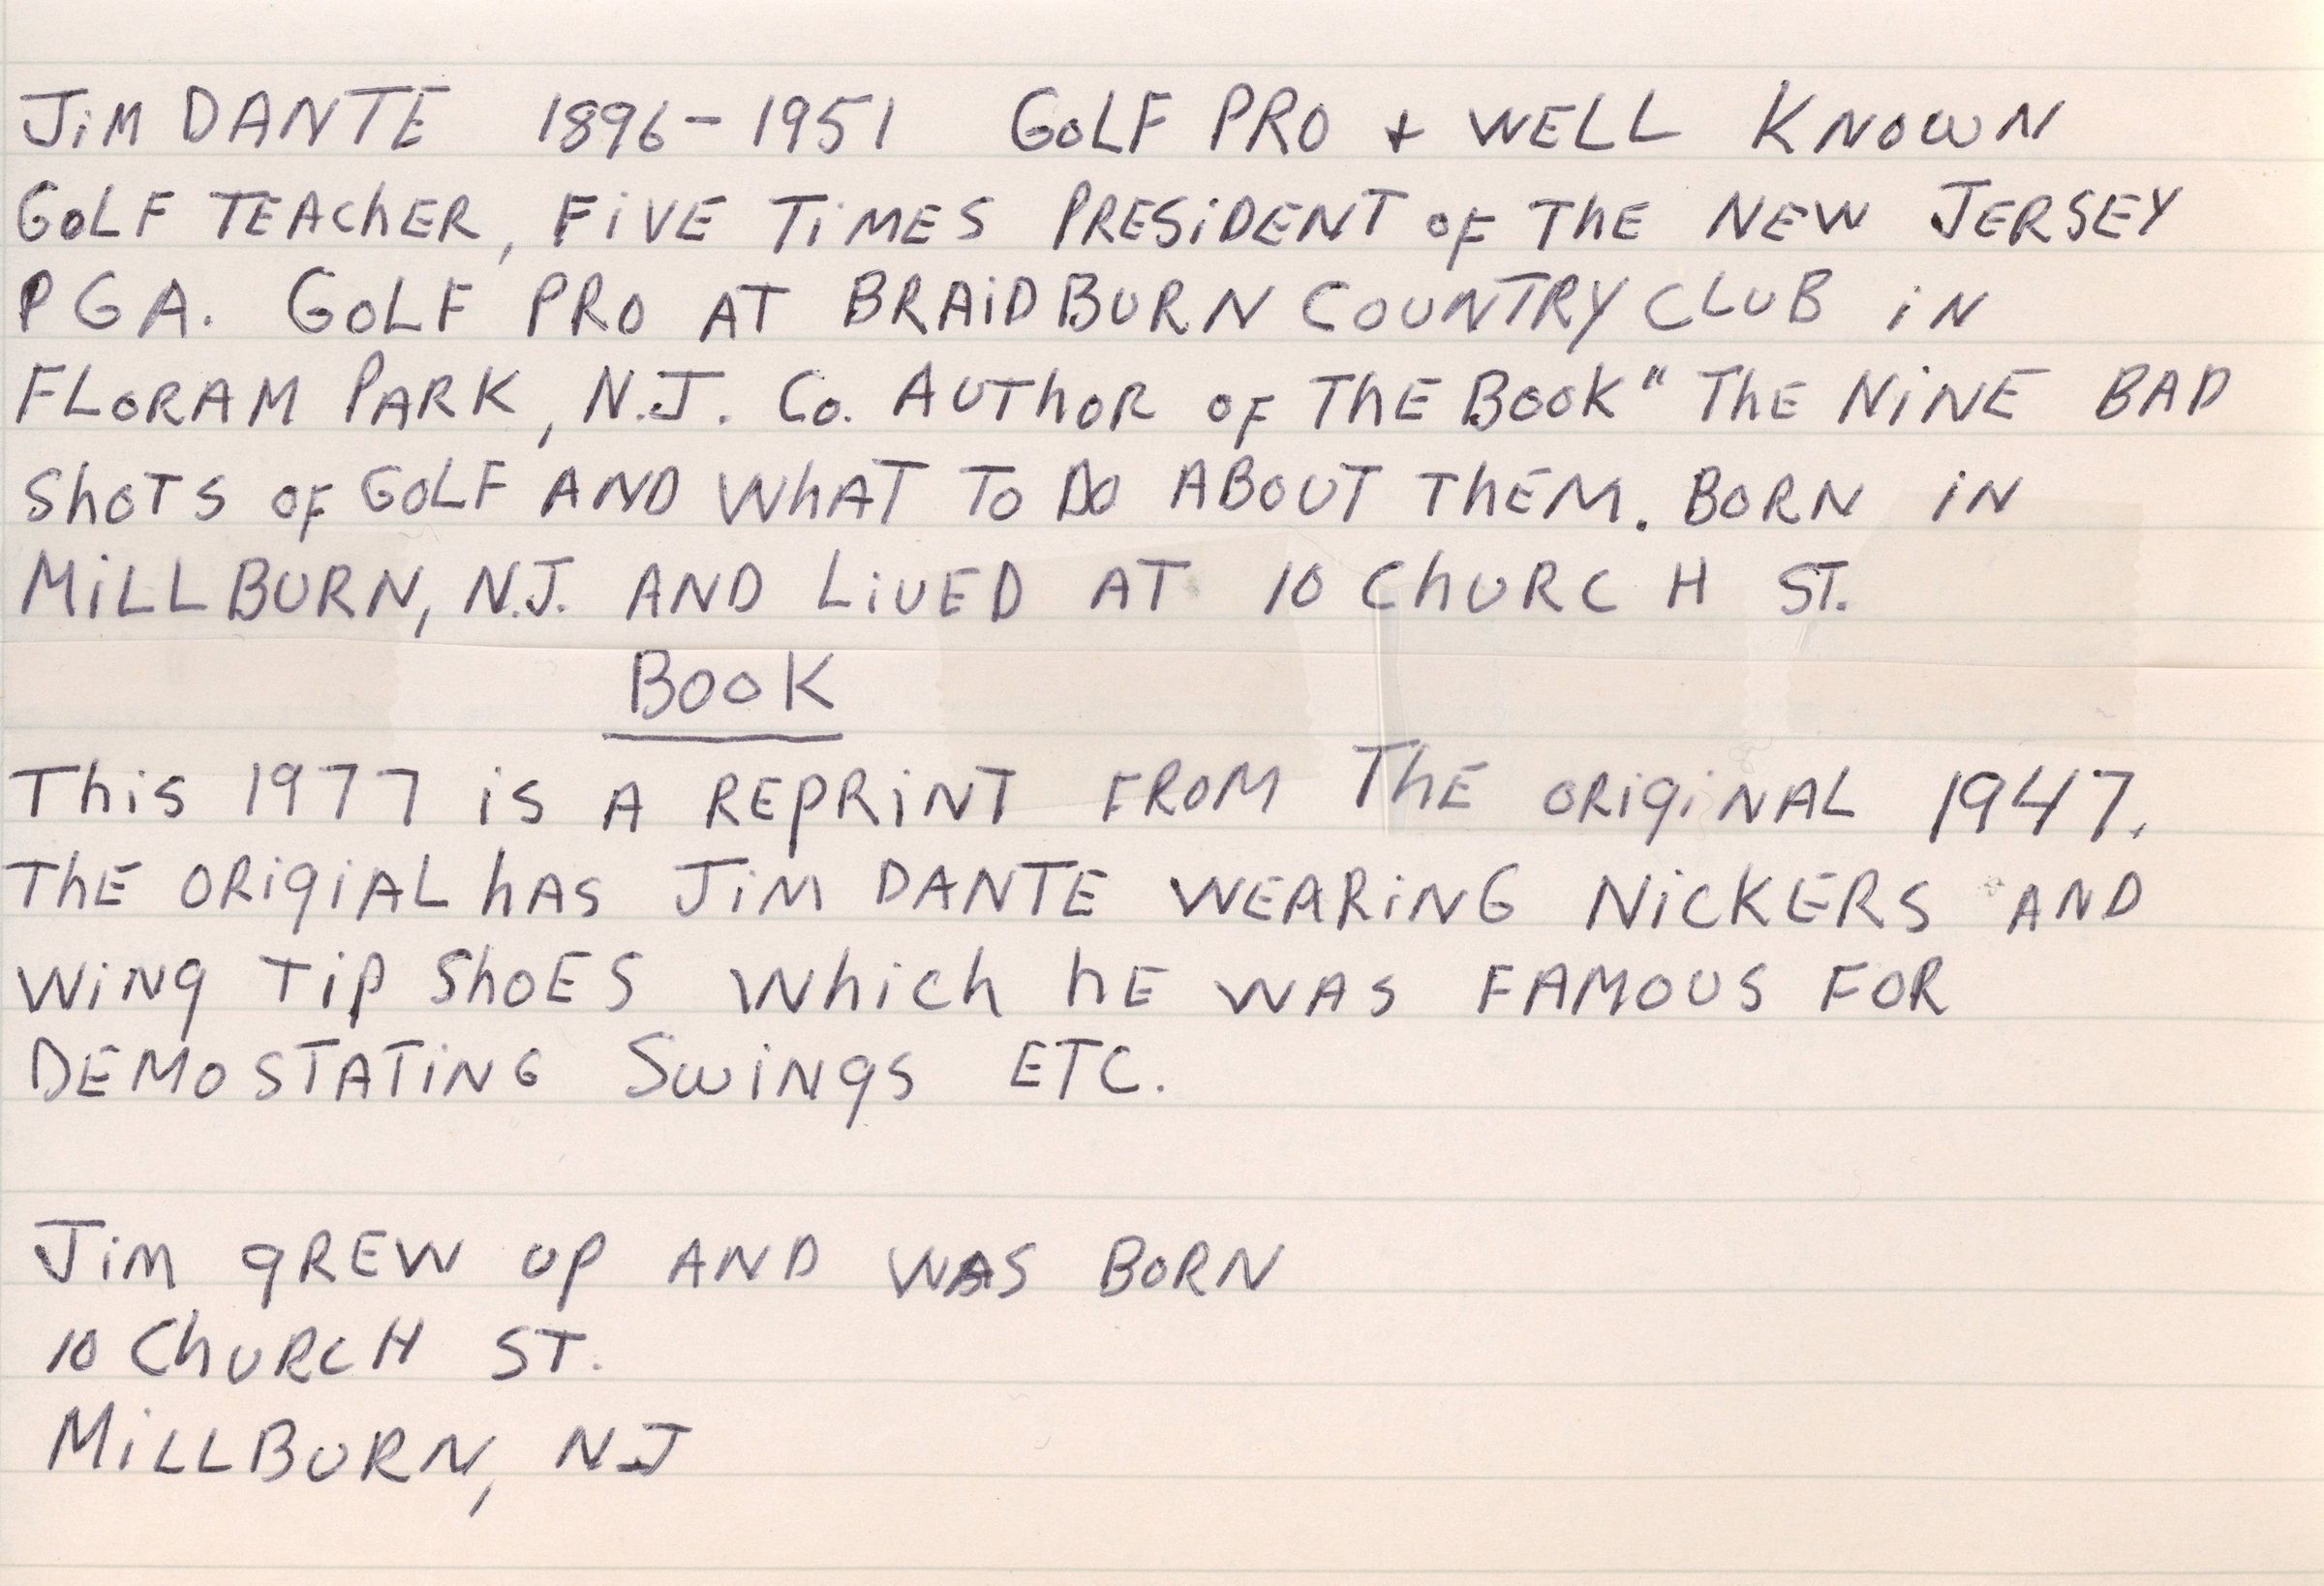 JiM DANTE 1896-1951 GOLF PRO + WELL KNOWN
GOLF TEAChER, FiVE TiMES PRESiDENT OF ThE NEW JERSEY
PGA. GOLF PRO AT BRAiDBURN COUNTRY CLUB iN
FLORAM PARK, N.J. Co. AUThOR OF ThE BOOK " ThE NiNE BAD
ShOTS OF GOLF AND WhAT TO DO ABOUT ThEM. BORN iN
MiLLBURN, N.J. AND LiVED AT 10 ChURCH ST.
BOOK
This 1977 is A REPRiNT FROM ThE ORiginAL 1947.
ThE ORigiAL hAS JiM DANTE WEARiNG NiCKERS AND
WiNg TiP ShOES Which hE WAS FAMOUS FOR
DEMOSTATiNG SwiNgS ETC.
JiM gREW UP AND WAS BORN
10 ChURCH ST.
MiLLBURN, NJ